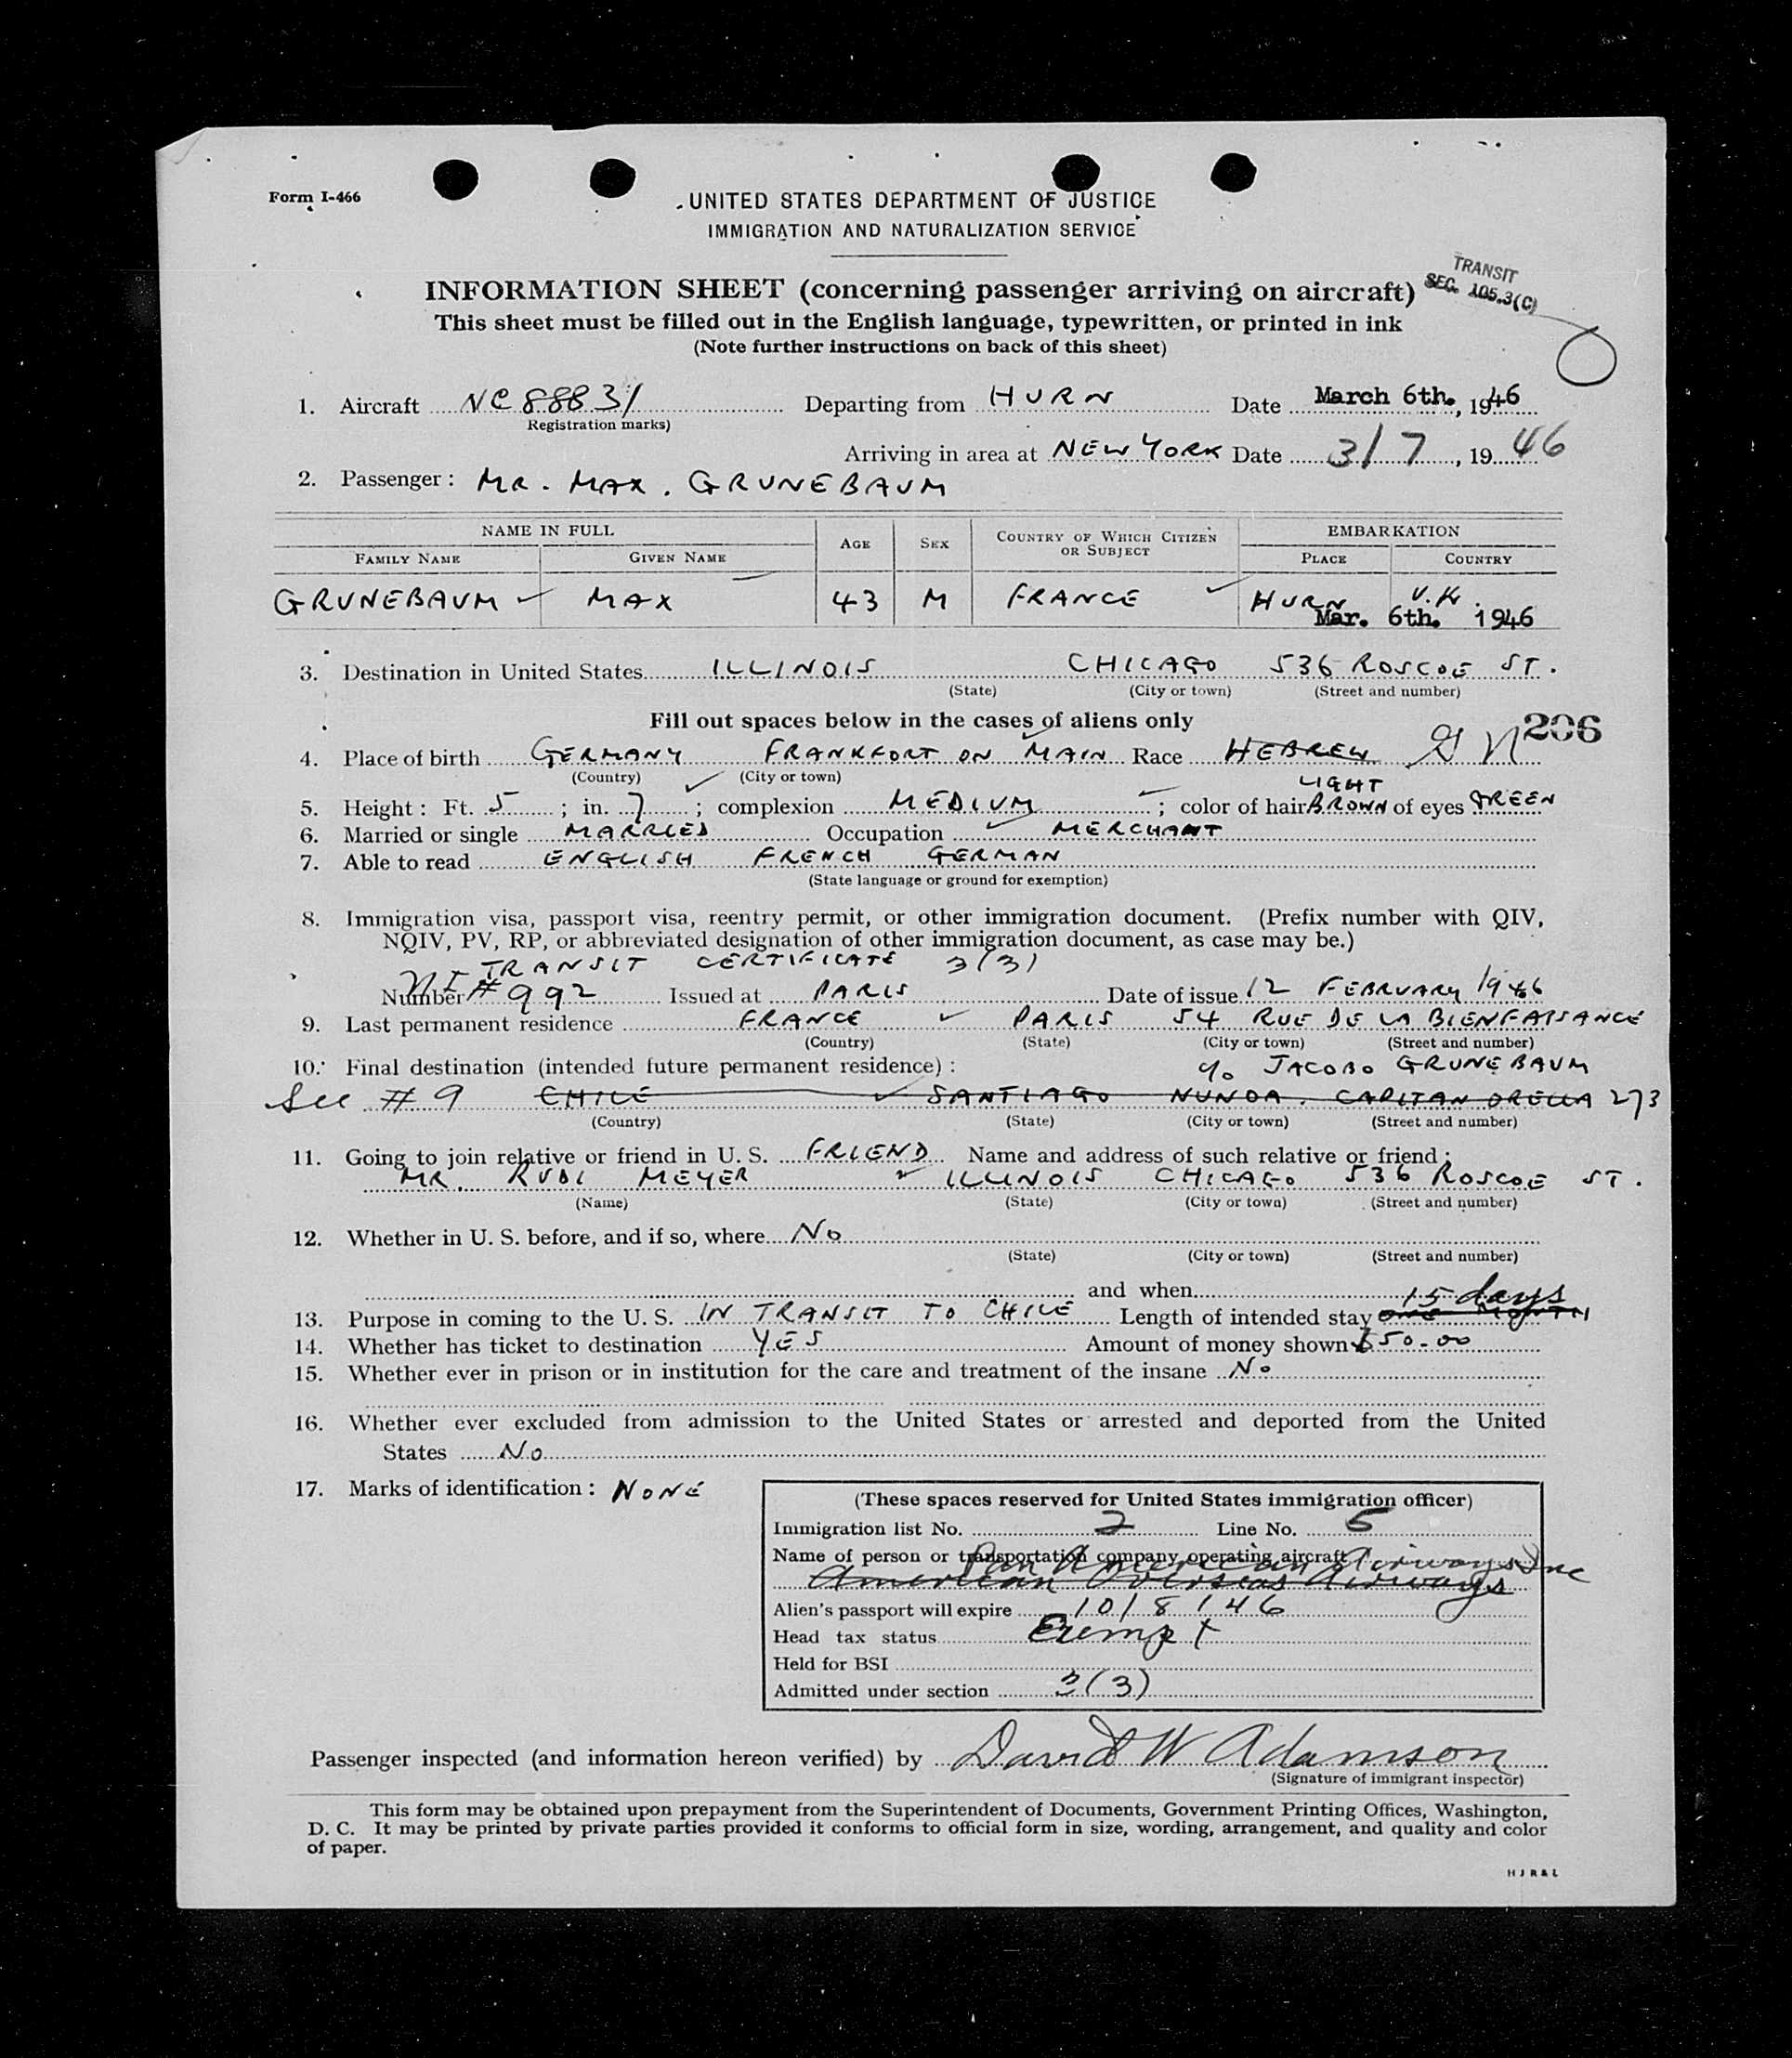 Form I-466
UNITED STATES DEPARTMENT OF JUSTICE
IMMIGRATION AND NATURALIZATION SERVICE
TRANSIT
SEC. 105.3(C)
INFORMATION SHEET (concerning passenger arriving on aircraft)
This sheet must be filled out in the English language, typewritten, or printed in ink
(Note further instructions on back of this sheet)
1. Aircraft NC 88831 Departing from HURN Date March 6th., 1946
(Registration marks)
Arriving in area at NEW YORK Date 3/7, 19 46
2. Passenger: MR. MAX. GRUNEBAUM
NAME IN FULL AGE SEX COUNTRY OF WHICH CITIZEN OR SUBJECT EMBARKATION
FAMILY NAME GIVEN NAME PLACE COUNTRY
GRUNEBAUM MAX 43 M FRANCE HURN U.K.
Mar. 6th. 1946
3. Destination in United States ILLINOIS CHICAGO 536 ROSCOE ST.
(State) (City or town) (Street and number)
Fill out spaces below in the cases of aliens only
206
4. Place of birth GERMANY FRANKFORT ON MAIN Race HEBREW
(Country) (City or town)
LIGHT
5. Height: Ft. 5; in. 7; complexion MEDIUM; color of hair BROWN of eyes GREEN
6. Married or single MARRIED Occupation MERCHANT
7. Able to read ENGLISH FRENCH GERMAN
(State language or ground for exemption)
8. Immigration visa, passport visa, reentry permit, or other immigration document. (Prefix number with QIV,
NQIV, PV, RP, or abbreviated designation of other immigration document, as case may be.)
TRANSIT CERTIFICATE 3(3)
Number # 992 Issued at PARIS Date of issue 12 FEBRUARY 1946
9. Last permanent residence FRANCE PARIS 54 RUE DE LA BIENFAISANCE
(Country) (State) (City or town) (Street and number)
10. Final destination (intended future permanent residence): c/o JACOBO GRUNEBAUM
See # 9 CHILE SANTIAGO NUNOA. CAPITAN ORELLA 273
(Country) (State) (City or town) (Street and number)
11. Going to join relative or friend in U. S. FRIEND Name and address of such relative or friend:
MR. RUDI MEYER ILLINOIS CHICAGO 536 ROSCOE ST.
(Name) (State) (City or town) (Street and number)
12. Whether in U. S. before, and if so, where No
(State) (City or town) (Street and number)
and when
15 days
13. Purpose in coming to the U. S. IN TRANSIT TO CHILE Length of intended stay ONE MONTH
14. Whether has ticket to destination YES Amount of money shown $50.00
15. Whether ever in prison or in institution for the care and treatment of the insane No
16. Whether ever excluded from admission to the United States or arrested and deported from the United
States No
17. Marks of identification: NONE
(These spaces reserved for United States immigration officer)
Immigration list No. 2 Line No. 5
Name of person or transportation company operating aircraft Pan American Airways Inc
American Overseas Airways
Alien's passport will expire 10/8/46
Head tax status Exempt
Held for BSI
Admitted under section 3(3)
Passenger inspected (and information hereon verified) by David W Adamson
(Signature of immigrant inspector)
This form may be obtained upon prepayment from the Superintendent of Documents, Government Printing Offices, Washington,
D. C. It may be printed by private parties provided it conforms to official form in size, wording, arrangement, and quality and color
of paper.
H J R & L